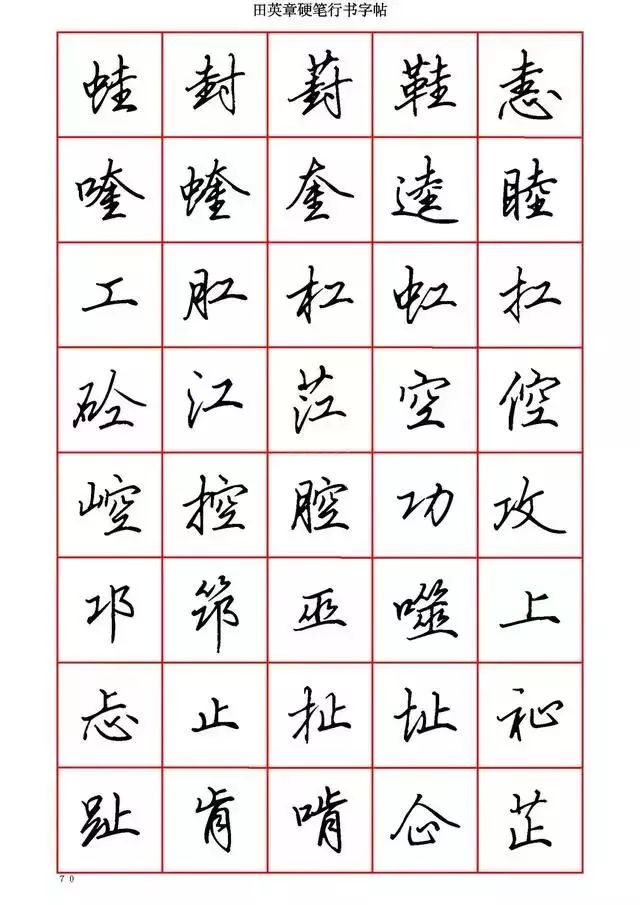 田英章硬笔行书字帖
蛙 封 葑 鞋 恚
喹 蝰 奎 逵 睦
工 肛 杠 虹 扛
砼 江 茳 空 倥
崆 控 腔 功 攻
邛 筇 巫 噬 上
忐 止 扯 址 祉
趾 肯 啃 企 芷
70